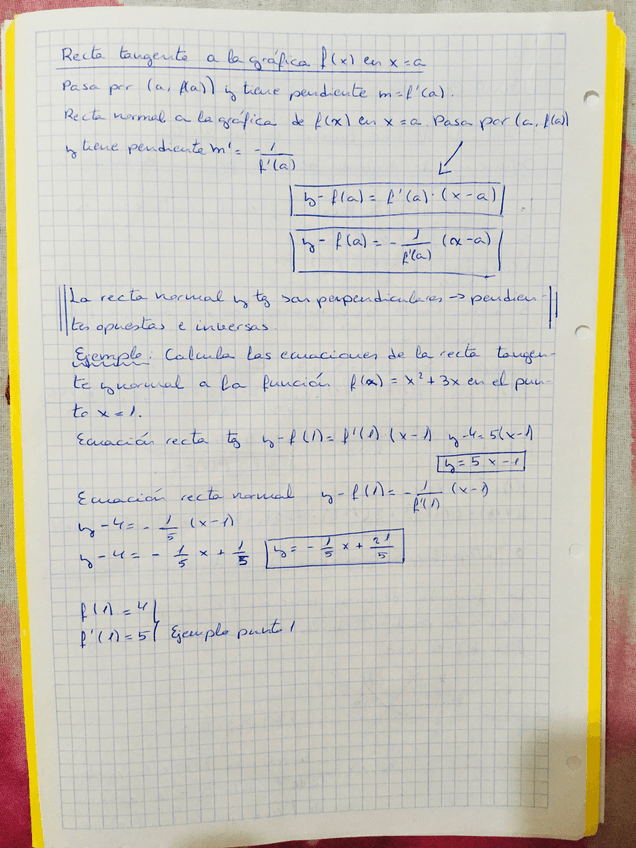 Recta tangente a la gráfica f(x) en x = a
Pasa por (a, f(a)) y tiene pendiente m = f'(a).
Recta normal a la gráfica de f(x) en x = a. Pasa por (a, f(a))
y tiene pendiente m' = -1/f'(a)
y - f(a) = f'(a) · (x - a)
y - f(a) = - 1/f'(a) (x - a)
La recta normal y tg son perpendiculares → pendien-
tes opuestas e inversas.
Ejemplo: Calcula las ecuaciones de la recta tangen-
te y normal a la función f(x) = x² + 3x en el pun-
to x = 1.
Ecuación recta tg y - f(1) = f'(1) (x - 1) y - 4 = 5(x - 1)
y = 5x - 1
Ecuación recta normal y - f(1) = - 1/f'(1) (x - 1)
y - 4 = - 1/5 (x - 1)
y - 4 = - 1/5 x + 1/5 y = - 1/5 x + 21/5
f(1) = 4
f'(1) = 5 Ejemplo punto 1